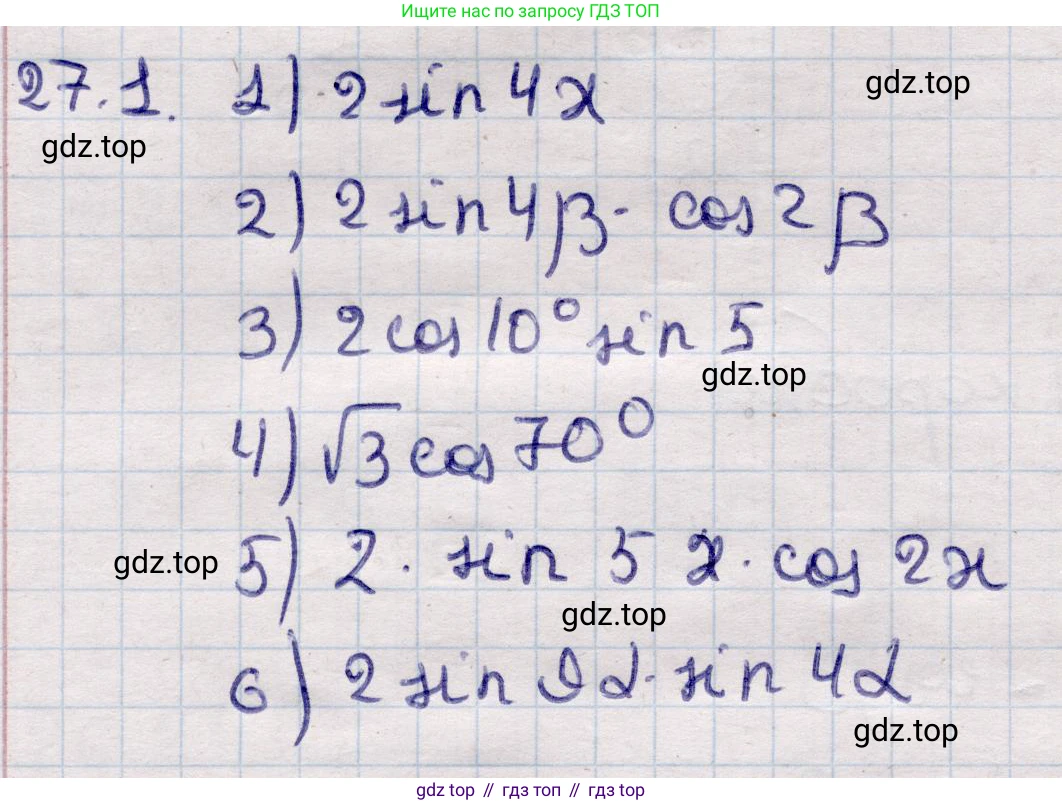 Ищите нас по запросу ГДЗ ТОП
27.1. 1) 2 sin 4x
gdz.top
gdz.top
2) 2 sin 4β · cos 2β
3) 2 cos 10° sin 5
gdz.top
4) √3 cos 70°
gdz.top
5) 2 · sin 5x · cos 2x
gdz.top
6) 2 sin 9α · sin 4α
gdz.top
gdz top // гдз топ // gdz top